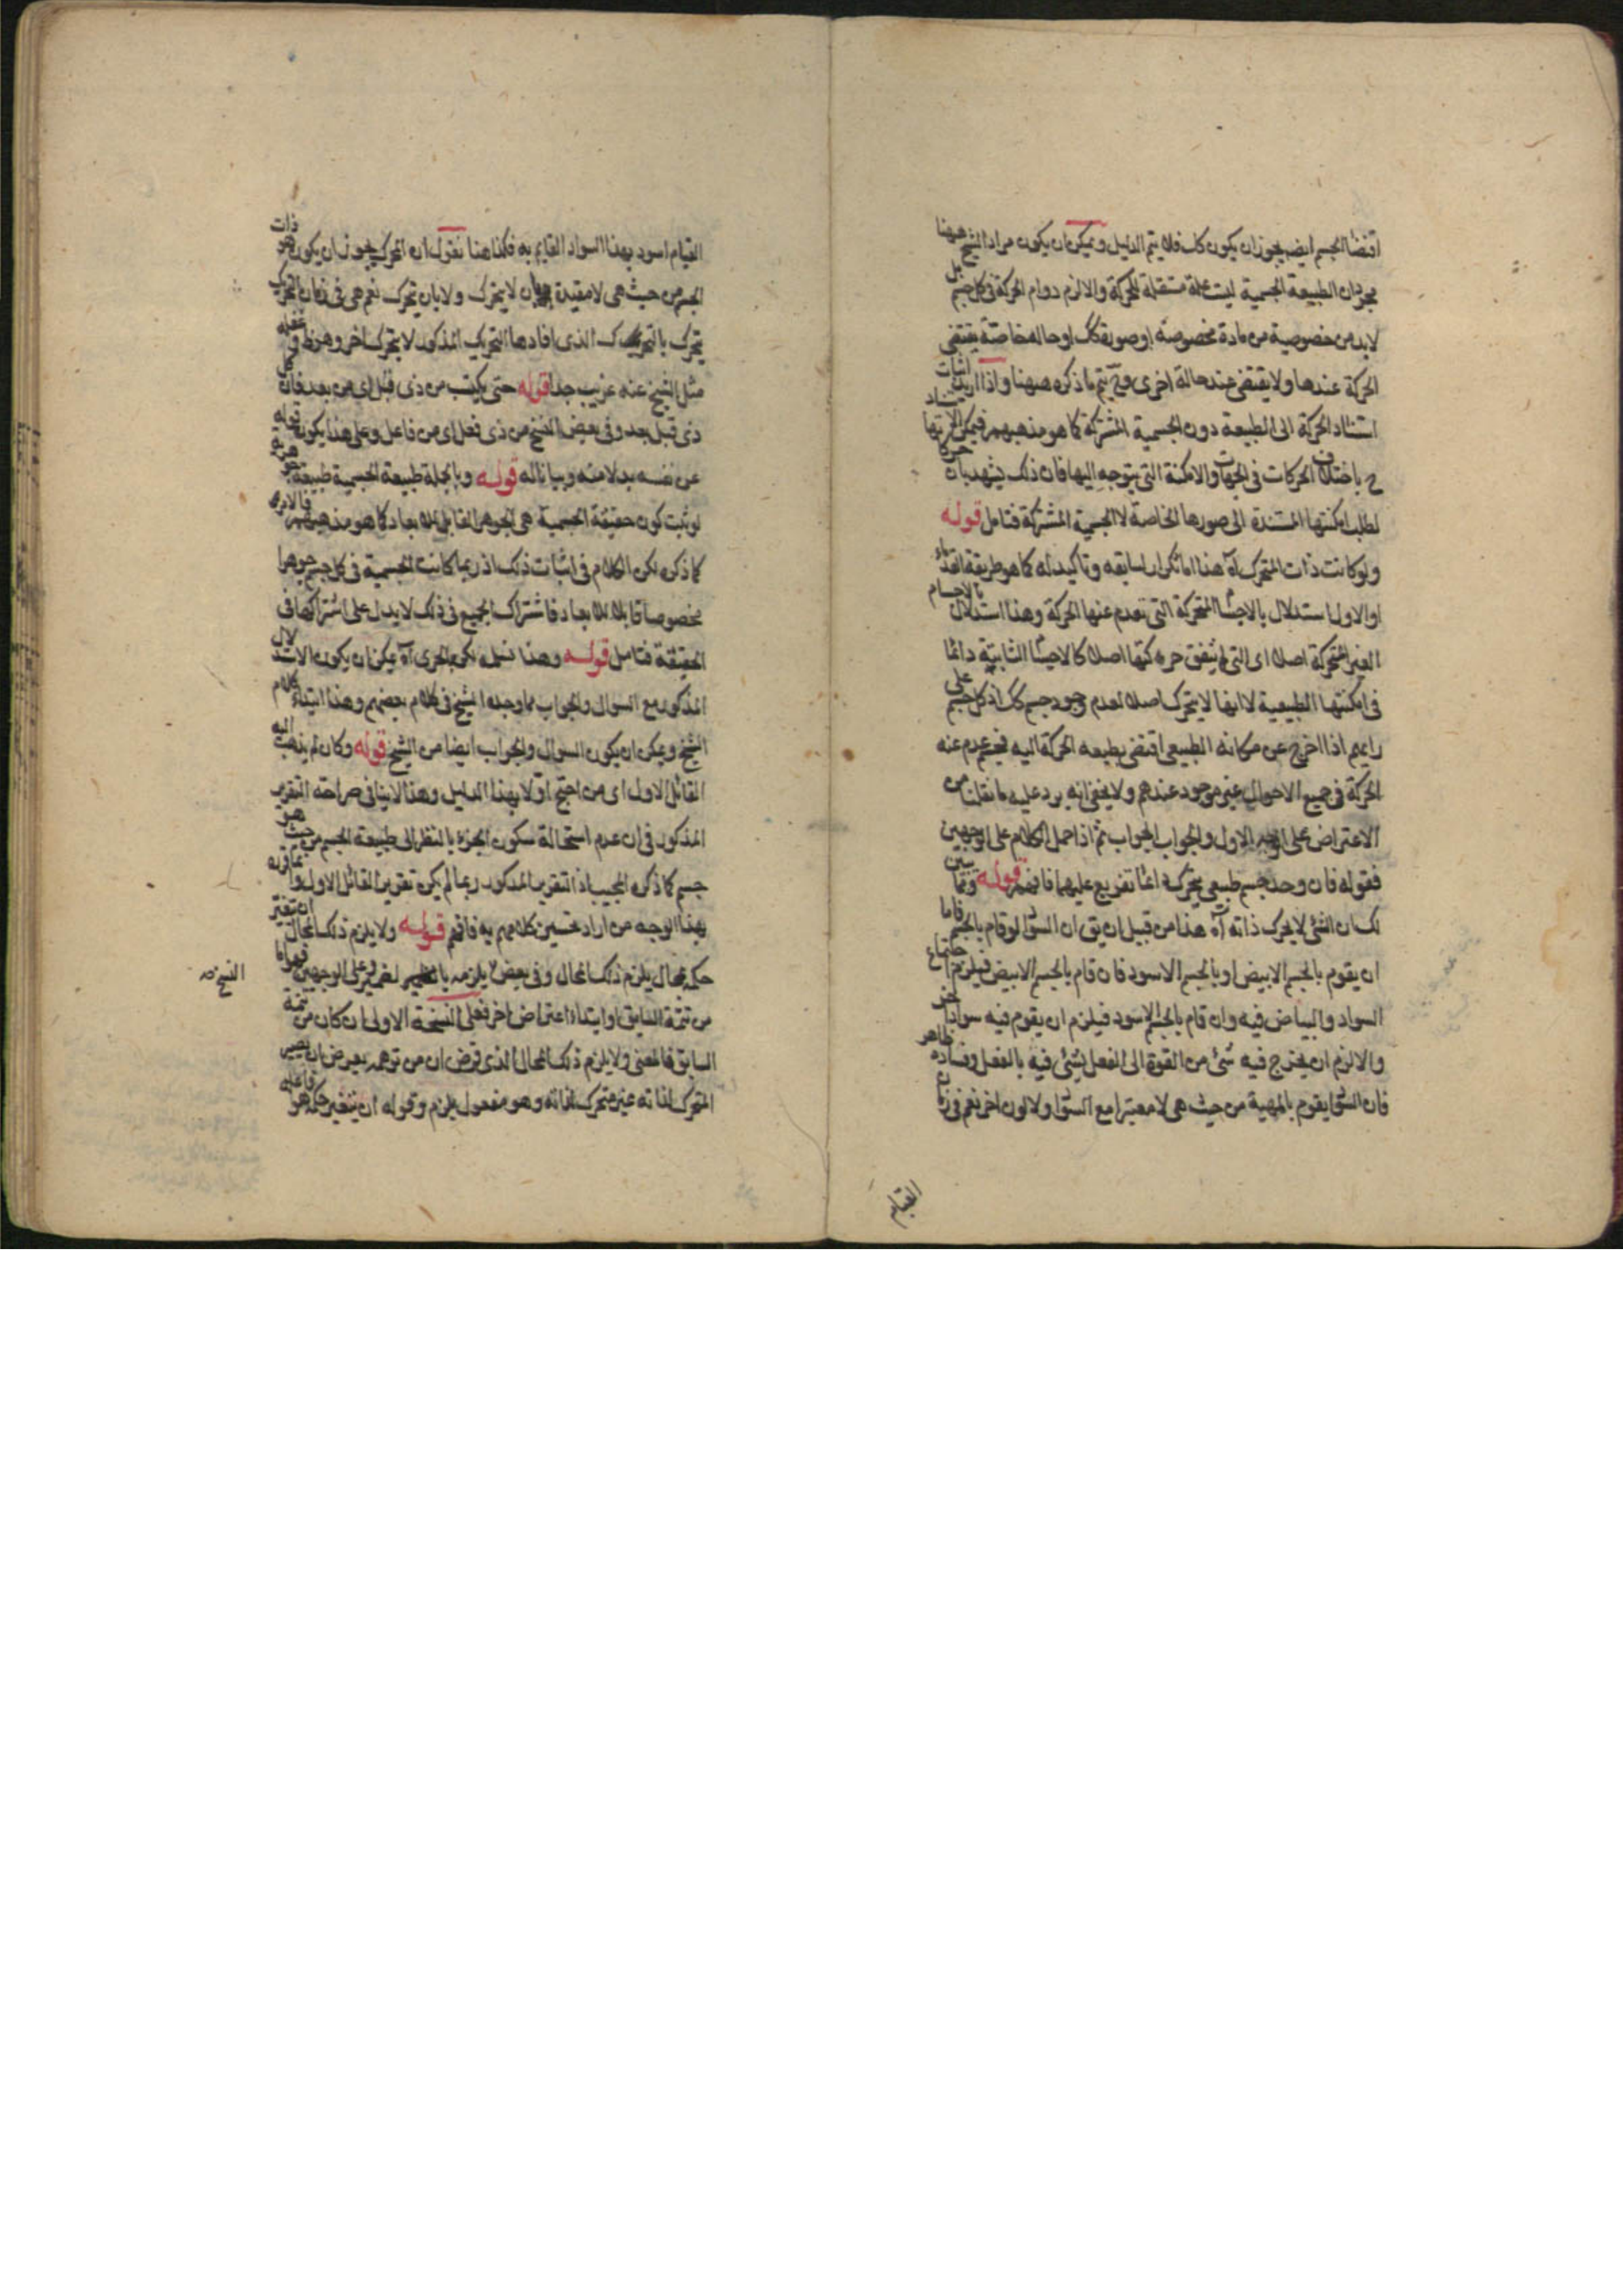 اقتضاء الجسم ايضا يجوز ان يكون كك فلا يتم الدليل ويمكن ان يكون مراد الشيخ ههنا
مجرد ان الطبيعة الجسمية ليست علة مستقلة للحركة والا لزم دوام الحركة في كل جسم بل
لا بد من خصوصية من مادة مخصوصة او صورة كك او حالة خاصة يقتضي
الحركة عندها ولا يقتضي عند حالة اخرى وح يتم ما ذكره ههنا واذا اريد اثبات
استناد الحركة الى الطبيعة دون الجسمية المشتركة كما هو مذهبهم فيمكن
ح باختلاف الحركات في الجهات والامكنة التي يتوجه اليها فان ذلك يشهد بان
لطلب امكنتها المستندة الى صورها الخاصة لا الجسمية المشتركة فتامل قوله
ولو كانت ذات المتحرك آه هذا اما تكرار لسابقه وتاكيد له كما هو طريقة القدماء
او الاول استدلال بالاجسام المتحركة التي تعدم عنها الحركة وهذا استدلال بالاجسام
الغير المتحركة اصلا اى التي لم يتفق حركتها اصلا كالاجسام الثابتة دائما
في امكنتها الطبيعية لا انها لا يتحرك اصلا لعدم وجود جسم كك اذ كل جسم على
رايهم اذا اخرج عن مكانه الطبيعي اقتضى بطبعه الحركة اليه فجسم عدم عنه
الحركة في جميع الاحوال غير موجود عندهم ولا يخفى انه يرد عليه ما نقلنا من
الاعتراض على الوجه الاول والجواب الجواب ثم اذا حمل الكلام على الوجهين
فقوله فان وجد جسم طبيعي يتحرك دائما تفريع عليهما فافهم قوله ومما يبين
لك ان الشئ لا يحرك ذاته آه هذا من قبيل ان يق ان السواد لو قام بالجسم فاما
ان يقوم بالجسم الابيض او بالجسم الاسود فان قام بالجسم الابيض فيلزم اجتماع
السواد والبياض فيه وان قام بالجسم الاسود فيلزم ان يقوم فيه سواد اخر
والا لزم ان يخرج فيه شئ من القوة الى الفعل لشئ فيه بالفعل وفساده ظاهر
فان السواد يقوم بالمهية من حيث هي لا معتبرا مع السواد ولا لون اخر نعم في زمان
القيام
القيام اسود بهذا السواد القايم به فكذا هنا نقول ان المحرك يجوز ان يكون هو ذات
الجسم من حيث هي لا مقيدة بان لا يتحرك ولا بان يتحرك نعم هي في زمان التحريك
يتحرك بالتحرك الذي افادها التحريك المذكور لا بتحرك اخر وهو ظ و غفلة
مثل الشيخ عنه غريب جدا قوله حتى يكتسب من ذي قبل اى من بعد فان كل
ذي قبل بعد وفي بعض النسخ من ذي فعل اى من فاعل وعلى هذا يكون قوله
عن نفسه بدلا منه وبيانا له قوله وبالجملة طبيعة الجسمية طبيعة جوهرية
لو ثبت كون حقيقة الجسمية هي الجوهر القابل للابعاد كما هو مذهبهم فالامر
كما ذكره لكن الكلام في اثبات ذلك اذ ربما كانت الجسمية في كل جسم جوهرا
مخصوصا قابلا للابعاد فاشتراك الجميع في ذلك لا يدل على اشتراكها في
الحقيقة فتامل قوله وهذا آه يمكن ان يكون الاستدلال
المذكور مع السوال والجواب مما وجده الشيخ في كلام بعضهم وهذا ابتداء كلام
الشيخ ويمكن ان يكون السوال والجواب ايضا من الشيخ قوله وكان لم يذهب اليه
القائل الاول اى من احتج اولا بهذا الدليل وهذا لا ينافي صراحته التقرير
المذكور في ان عدم استحالة سكون الجزء بالنظر الى طبيعة الجسم من حيث هو
جسم كما ذكره المجيب اذ التقرير المذكور ربما لم يكن تقرير القائل الاول وانما قرره
بهذا الوجه من اراد تحسين كلامهم به فافهم قوله ولا يلزم ذلك المحال ان يتغير
حكمه بمحال يلزم ذلك المحال وفي بعض يلزمه بالضمير لغمير وعلى الوجهين فهو اما
النسخ صح
من تتمة السابق او ابتداء اعتراض اخر فعلى النسخة الاولى ان كان من تتمة
السابق فالمعنى ولا يلزم ذلك المحال الذي فرض ان من توهمه يعرض ان يصير
المتحرك لذاته غير متحرك لذاته وهو مفعول يلزم وقوله ان يتغير حكمه هو فاعله